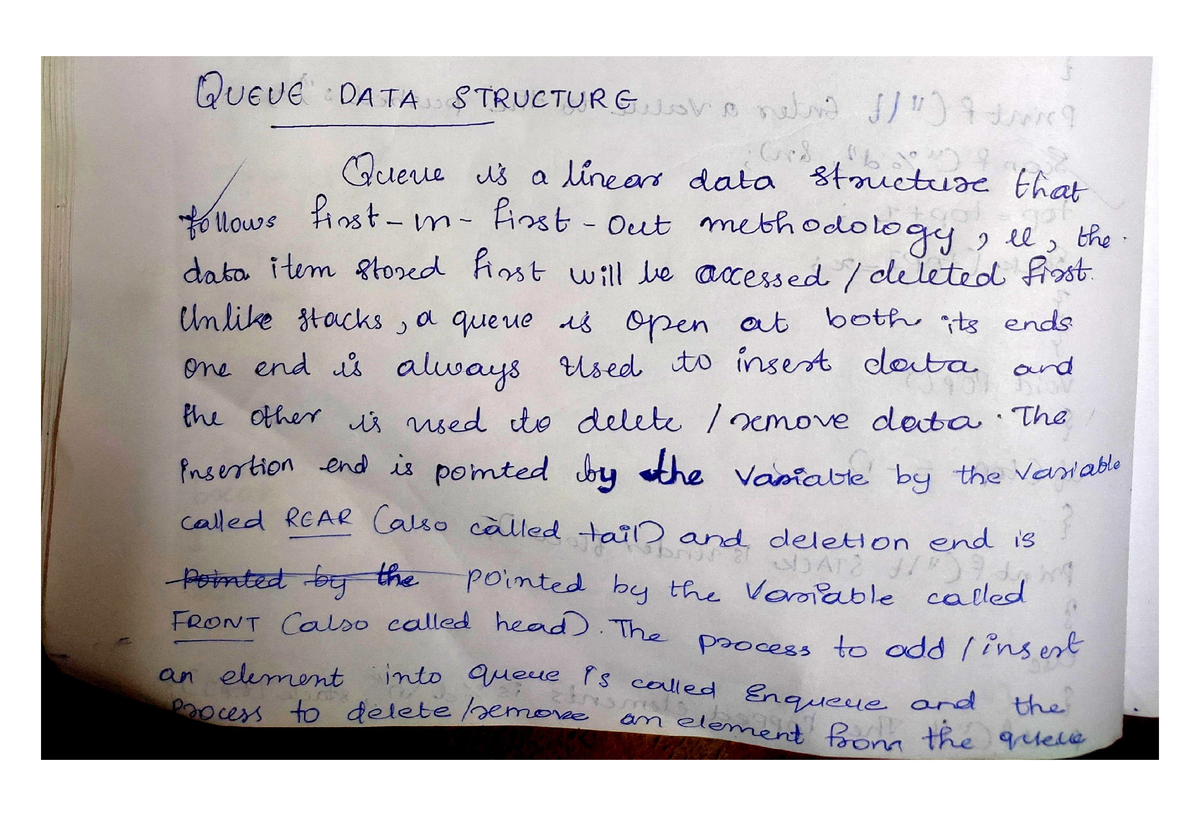 QUEUE DATA STRUCTURE
Queue is a linear data structure that
follows first-in-first-out methodology, ie, the
data item stored first will be accessed / deleted first.
Unlike stacks, a queue is open at both its ends
one end is always used to insert data and
the other is used to delete / remove data. The
insertion end is pointed by the variable by the variable
called REAR (also called tail) and deletion end is
pointed by the pointed by the variable called
FRONT (also called head). The process to add / insert
an element into queue is called Enqueue and the
process to delete / remove an element from the queue